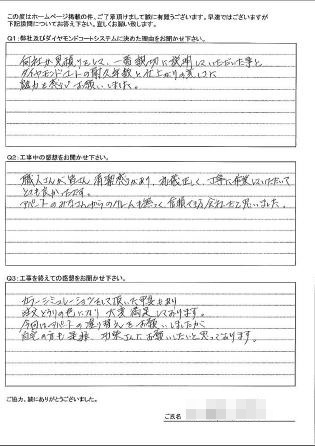 この度はホームページ掲載の件、ご了承頂けまして誠に有難うございます。早速ではございますが
下記設問についてお答え下さい。宜しくお願い致します。
Q1:弊社及びダイヤモンドコートシステムに決めた理由をお聞かせ下さい。
何社か見積りをして、一番親切に説明していただいた事と
ダイヤモンドコートの耐久年数と仕上がりの美しさに
魅力を感じお願いしました。
Q2:工事中の感想をお聞かせ下さい。
職人さんが皆さん清潔感があり、礼儀正しく、丁寧に作業していただいて
とても良かったです。
アパートのみなさんからのクレームも無って、信頼くる会社だと思いました。
Q3:工事を終えての感想をお聞かせ下さい。
カラーシミュレーションをして頂いた甲斐もあり
注文どうりの色になり大変満足しております。
今回はアパートの塗り替えをお願いしましたが
自宅の方も是非、お願いしたいと思っております。
ご協力、誠にありがとうございました。
ご氏名